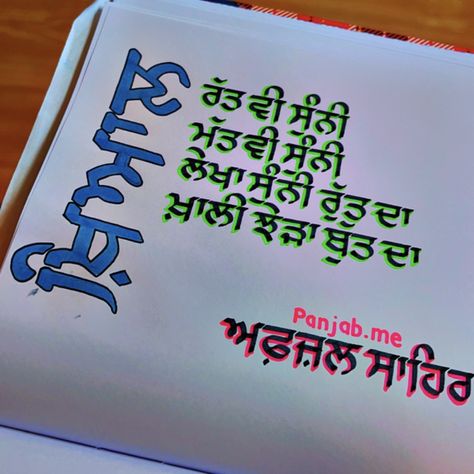 ਖ਼ਿਆਲ
ਰੱਤ ਵੀ ਸੁੰਨੀ
ਮੱਤ ਵੀ ਸੁੰਨੀ
ਲੇਖਾ ਸੁੰਨੀ ਰੁੱਤ ਦਾ
ਖ਼ਾਲੀ ਝੇੜਾ ਬੁੱਤ ਦਾ
Panjab.me
ਅਫ਼ਜ਼ਲ ਸਾਹਿਰ